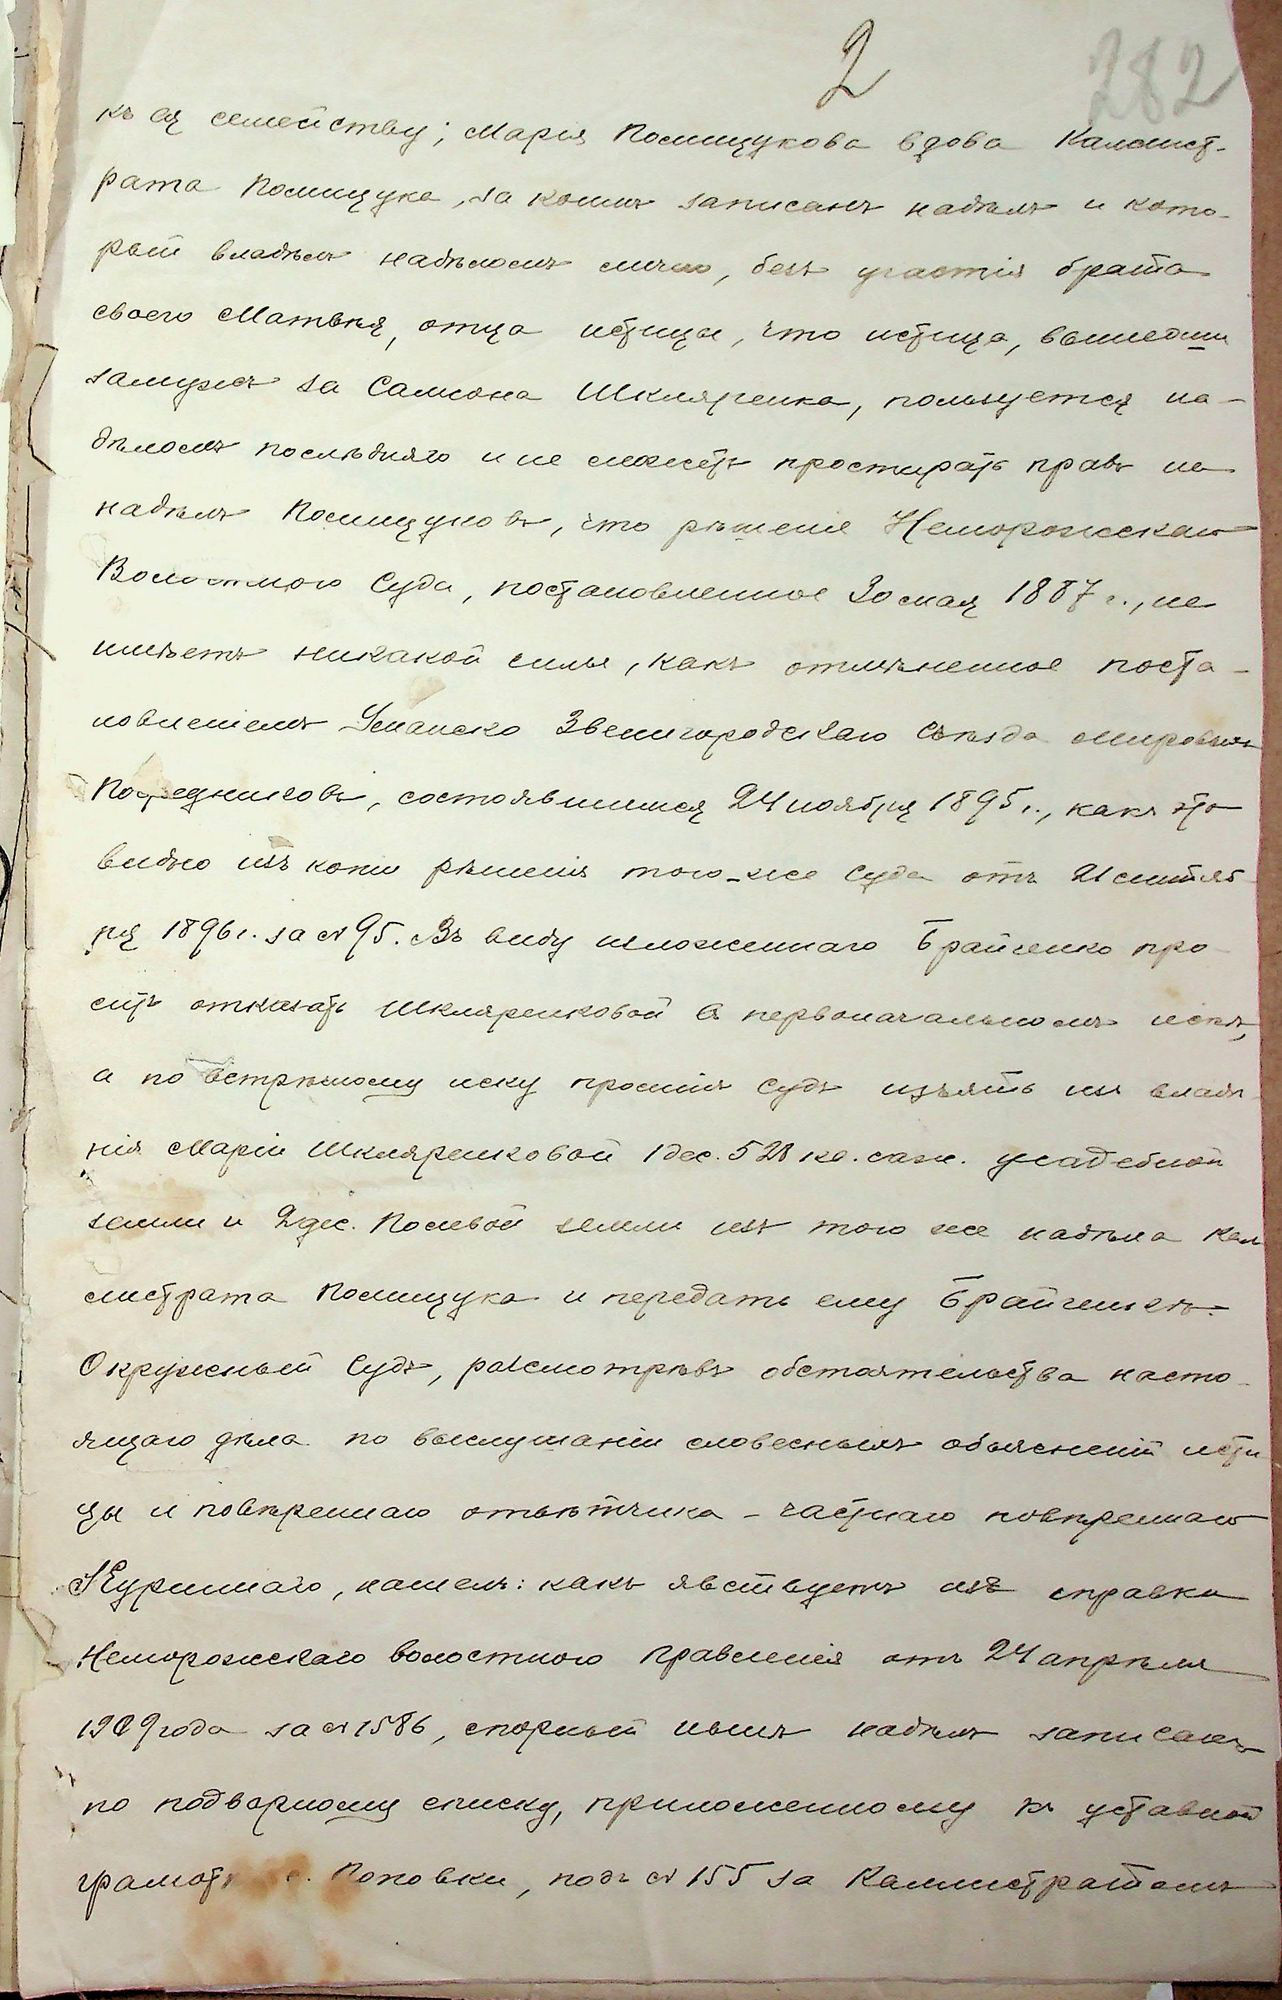 2
282
къ ея семейству; Марiя Полищукова вдова Калист-
рата Полищука, за коимъ записанъ надѣлъ и кото-
рый владѣлъ надѣломъ лично, безъ участiя брата
своего Матвѣя, отца истицы, что истица, вышедши
замужъ за Самсона Шкляренка, пользуется на-
дѣломъ послѣдняго и не можетъ простирать правъ на
надѣлъ Полищуковъ, что рѣшенiе Неморожскаго
Волостного Суда, постановленное 30 мая 1887 г., не
имѣетъ никакой силы, какъ отмѣненное поста-
новленiемъ Уманско Звенигородскаго Съѣзда мировыхъ
Посредниковъ, состоявшимся 24 ноября 1895 г., какъ это
видно изъ копiи рѣшенiя того-же Суда отъ 21 сентяб
ря 1896 г. за № 95. Въ виду изложеннаго Брайченко про
ситъ отказать Шкляренковой въ первоначальномъ искѣ,
а по встрѣчному иску проситъ Судъ изъять изъ владѣ
нiя Марiи Шкляренковой 1 дес. 528 кв. саж. усадебной
земли и 2 дес. Полевой земли изъ того же надѣла Кал
листрата Полищука и передать ему Брайченкѣ.
Окружный Судъ, разсмотрѣвъ обстоятельства насто-
ящаго дѣла по выслушанiи словесныхъ объясненiй исти
цы и повѣреннаго отвѣтчика - частнаго повѣреннаго
Куриннаго, нашелъ: какъ явствуетъ изъ справки
Неморожскаго волостного Правленiя отъ 24 апрѣля
1909 года за № 1586, спорный нынѣ надѣлъ записанъ
по подворному списку, приложенному къ уставной
грамотѣ с. Поповки, подъ № 155 за Каллистратомъ